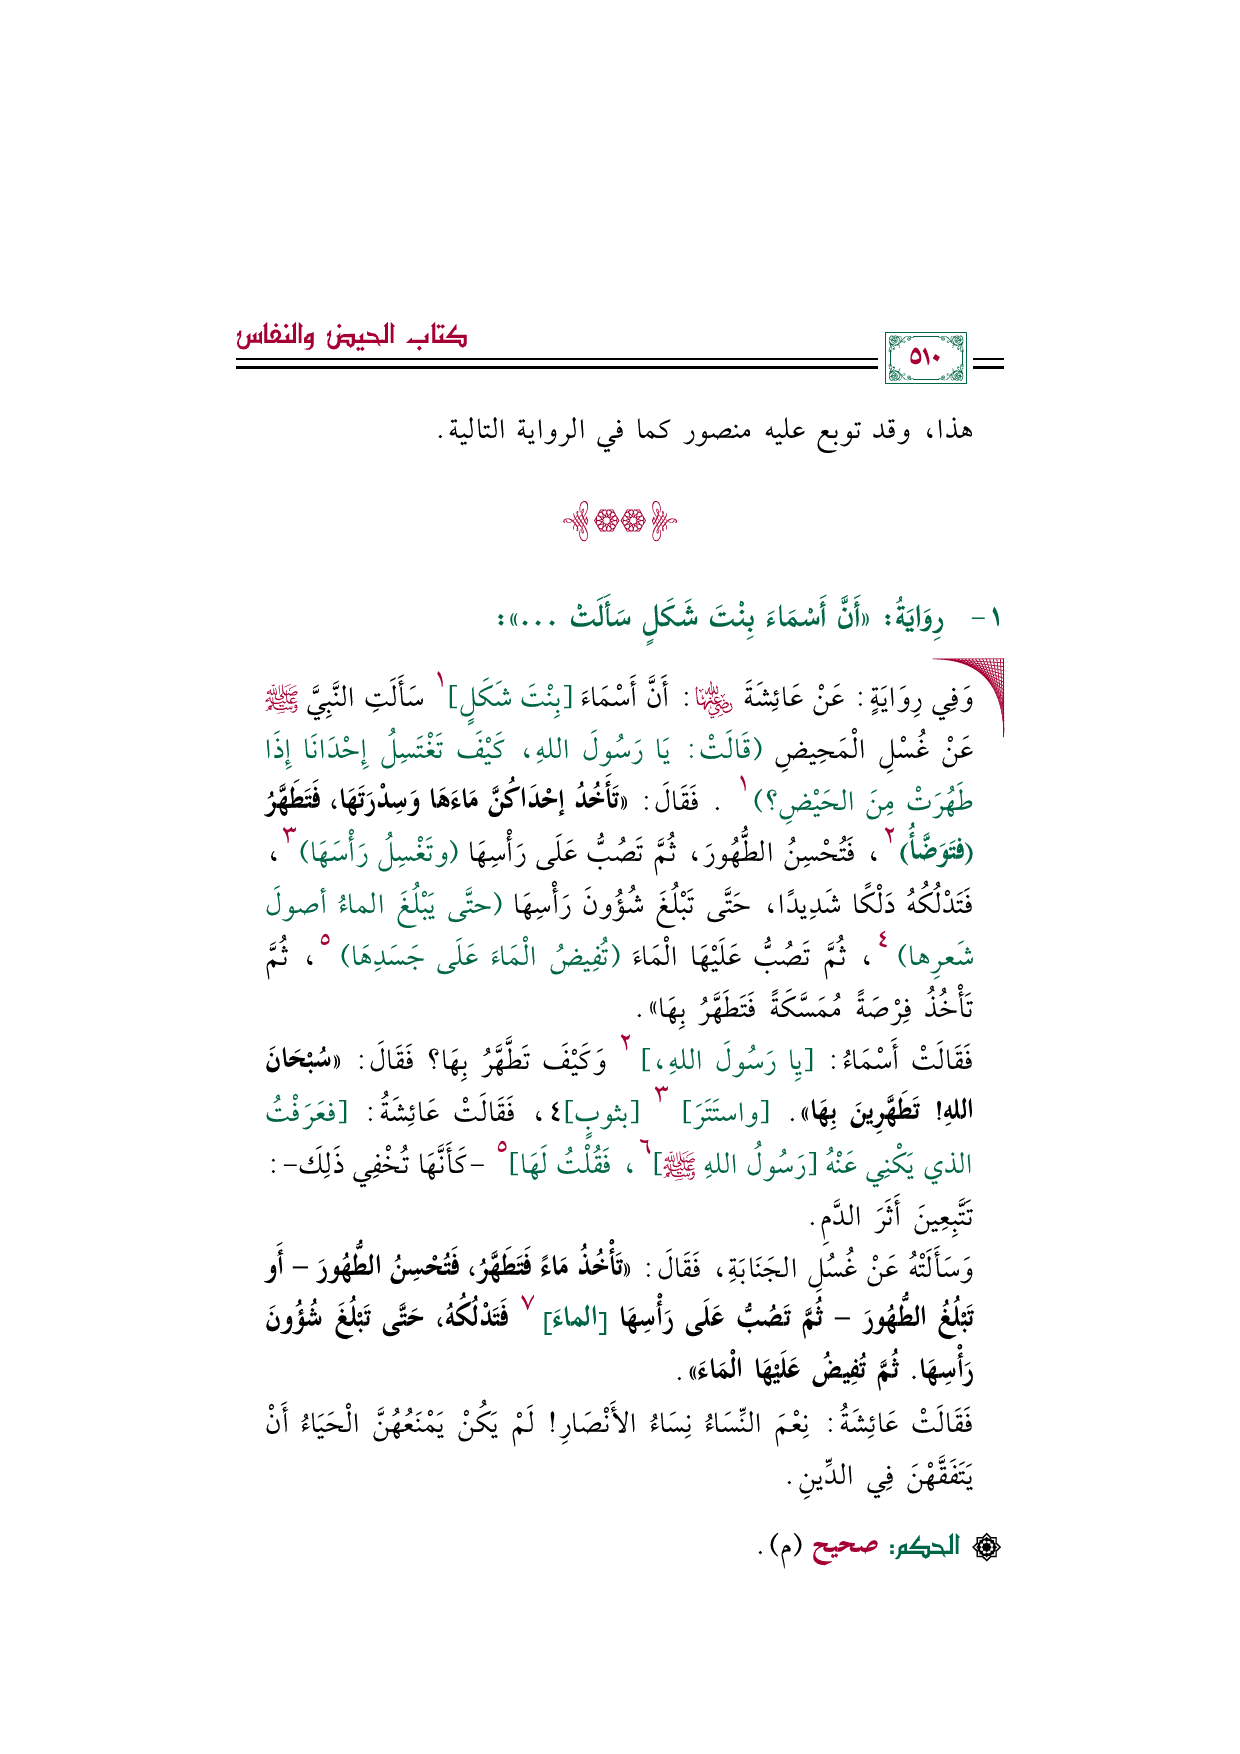 كتاب الحيض والنفاس
٥١٠
هذا، وقد توبع عليه منصور كما في الرواية التالية.
١- رِوَايَةُ: «أَنَّ أَسْمَاءَ بِنْتَ شَكَلٍ سَأَلَتْ ...»:
وَفِي رِوَايَةٍ: عَنْ عَائِشَةَ رضي الله عنها: أَنَّ أَسْمَاءَ [بِنْتَ شَكَلٍ]١ سَأَلَتِ النَّبِيَّ ﷺ
عَنْ غُسْلِ الْمَحِيضِ (قَالَتْ: يَا رَسُولَ اللهِ، كَيْفَ تَغْتَسِلُ إِحْدَانَا إِذَا
طَهُرَتْ مِنَ الحَيْضِ؟)١ . فَقَالَ: «تَأْخُذُ إِحْدَاكُنَّ مَاءَهَا وَسِدْرَتَهَا، فَتَطَهَّرُ
(فتَوَضَّأُ)٢، فَتُحْسِنُ الطُّهُورَ، ثُمَّ تَصُبُّ عَلَى رَأْسِهَا (وتَغْسِلُ رَأْسَهَا)٣،
فَتَدْلُكُهُ دَلْكًا شَدِيدًا، حَتَّى تَبْلُغَ شُؤُونَ رَأْسِهَا (حتَّى يَبْلُغَ الماءُ أصولَ
شَعرِها)٤، ثُمَّ تَصُبُّ عَلَيْهَا الْمَاءَ (تُفِيضُ الْمَاءَ عَلَى جَسَدِهَا)٥، ثُمَّ
تَأْخُذُ فِرْصَةً مُمَسَّكَةً فَتَطَهَّرُ بِهَا».
فَقَالَتْ أَسْمَاءُ: [يا رَسُولَ اللهِ،]٢ وَكَيْفَ تَطَهَّرُ بِهَا؟ فَقَالَ: «سُبْحَانَ
اللهِ! تَطَهَّرِينَ بِهَا». [واستَتَرَ]٣ [بثوبٍ]٤، فَقَالَتْ عَائِشَةُ: [فعَرَفْتُ
الذي يَكْنِي عَنْهُ [رَسُولُ اللهِ ﷺ]٦، فَقُلْتُ لَهَا]٥ -كَأَنَّهَا تُخْفِي ذَلِكَ-:
تَتَّبِعِينَ أَثَرَ الدَّمِ.
وَسَأَلَتْهُ عَنْ غُسْلِ الجَنَابَةِ، فَقَالَ: «تَأْخُذُ مَاءً فَتَطَهَّرُ، فَتُحْسِنُ الطُّهُورَ – أَو
تَبْلُغُ الطُّهُورَ – ثُمَّ تَصُبُّ عَلَى رَأْسِهَا [الماءَ]٧ فَتَدْلُكُهُ، حَتَّى تَبْلُغَ شُؤُونَ
رَأْسِهَا. ثُمَّ تُفِيضُ عَلَيْهَا الْمَاءَ».
فَقَالَتْ عَائِشَةُ: نِعْمَ النِّسَاءُ نِسَاءُ الأَنْصَارِ! لَمْ يَكُنْ يَمْنَعُهُنَّ الْحَيَاءُ أَنْ
يَتَفَقَّهْنَ فِي الدِّينِ.
الحكم: صحيح (م).